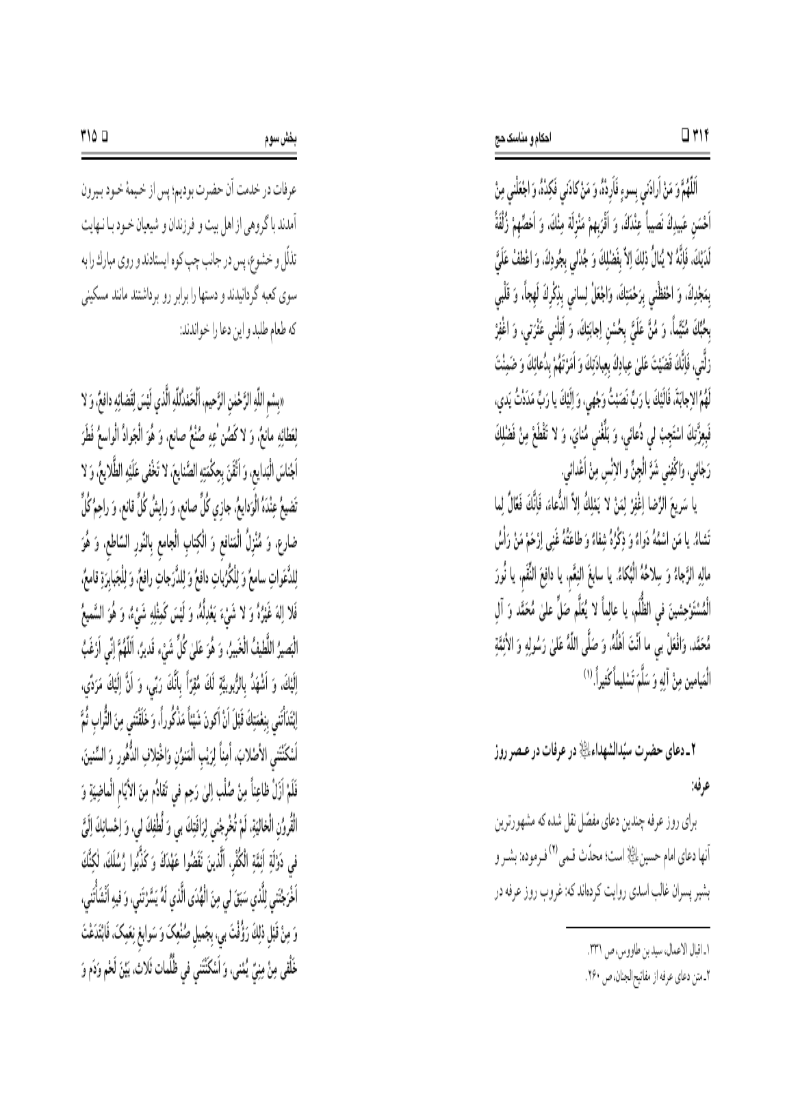 ۳۱۴ ❑ احکام و مناسک حج
اَللّهُمَّ وَ مَنْ اَرادَنى بِسوءٍ فَاَرِدْهُ، وَ مَنْ كادَنى فَكِدْهُ، وَ اجْعَلْنى مِنْ
اَحْسَنِ عَبيدِكَ نَصيباً عِنْدَكَ، وَ اَقْرَبِهِمْ مَنْزِلَةً مِنْكَ، وَ اَخَصِّهِمْ زُلْفَةً
لَدَيْكَ، فَاِنَّهُ لا يُنالُ ذلِكَ اِلاّ بِفَضْلِكَ وَ جُدْلى بِجودِكَ، وَ اعْطِفْ عَلَىَّ
بِمَجْدِكَ، وَ احْفَظْنى بِرَحْمَتِكَ، وَاجْعَلْ لِسانى بِذِكْرِكَ لَهِجاً، وَ قَلْبى
بِحُبِّكَ مُتَيَّماً، وَ مُنَّ عَلَىَّ بِحُسْنِ اِجابَتِكَ، وَ اَقِلْنى عَثْرَتى، وَ اغْفِرْ
زَلَّتى، فَاِنَّكَ قَضَيْتَ عَلى عِبادِكَ بِعِبادَتِكَ وَ اَمَرْتَهُمْ بِدُعائِكَ وَ ضَمِنْتَ
لَهُمُ الاِجابَةَ، فَاِلَيْكَ يا رَبِّ نَصَبْتُ وَجْهى، وَ اِلَيْكَ يا رَبِّ مَدَدْتُ يَدى،
فَبِعِزَّتِكَ اسْتَجِبْ لى دُعائى، وَ بَلِّغْنى مُناىَ، وَ لا تَقْطَعْ مِنْ فَضْلِكَ
رَجائى، وَاكْفِنى شَرَّ الْجِنِّ و الاِنْسِ مِنْ اَعْدائى.
يا سَريعَ الرِّضا اِغْفِرْ لِمَنْ لا يَمْلِكُ اِلاّ الدُّعاءَ، فَاِنَّكَ فَعّالٌ لِما
تَشاءُ، يا مَنِ اسْمُهُ دَواءٌ وَ ذِكْرُهُ شِفاءٌ وَ طاعَتُهُ غِنًى اِرْحَمْ مَنْ رَأْسُ
مالِهِ الرَّجاءُ وَ سِلاحُهُ الْبُكاءُ، يا سابِغَ النِّعَمِ، يا دافِعَ النِّقَمِ، يا نُورَ
الْمُسْتَوْحِشينَ فِى الظُّلَمِ، يا عالِماً لا يُعَلَّم صَلِّ عَلى مُحَمَّد وَ آلِ
مُحَمَّد، وَافْعَلْ بى ما اَنْتَ اَهْلُهُ، وَ صَلَّى اللّهُ عَلى رَسُولِهِ وَ الاَئِمَّةِ
الْمَيامينَ مِنْ آلِهِ وَ سَلَّمَ تَسْليماً كَثيراً.(۱)
۲ـ دعاى حضرت سيّدالشهداءعليه‌السلام در عرفات در عصر روز
عرفه:
براى روز عرفه چندين دعاى مفصّل نقل شده كه مشهورترين
آنها دعاى امام حسينعليه‌السلام است؛ محدّث قمى(۲) فرموده: بشر و
بشير پسران غالب اسدى روايت كرده‌اند كه: غروب روز عرفه در
۱ـ اقبال الاعمال، سيد بن طاووس، ص ۳۳۱.
۲ـ متن دعاى عرفه از مفاتيح‌الجنان، ص ۲۶۰.
بخش سوم ❑ ۳۱۵
عرفات در خدمت آن حضرت بوديم؛ پس از خيمهٔ خود بيرون
آمدند با گروهى از اهل بيت و فرزندان و شيعيان خود با نهايت
تذلّل و خشوع، پس در جانب چپ كوه ايستادند و روى مبارك را به
سوى كعبه گردانيدند و دستها را برابر رو برداشتند مانند مسكينى
كه طعام طلبد و اين دعا را خواندند:
«بِسْمِ اللّهِ الرَّحْمنِ الرَّحيمِ، اَلْحَمْدُلِلّهِ الَّذى لَيْسَ لِقَضائِهِ دافِعٌ، وَ لا
لِعَطائِهِ مانِعٌ، وَ لا كَصُنْعِهِ صُنْعُ صانِعٍ، وَ هُوَ الْجَوادُ الْواسِعُ فَطَرَ
اَجْناسَ الْبَدايِعِ، وَ اَتْقَنَ بِحِكْمَتِهِ الصَّنايِعَ، لا تَخْفى عَلَيْهِ الطَّلايِعُ، وَ لا
تَضيعُ عِنْدَهُ الْوَدايِعُ، جازى كُلِّ صانِعٍ، وَ رايِشُ كُلِّ قانِعٍ، وَ راحِمُ كُلِّ
ضارِع، وَ مُنْزِلُ الْمَنافِعِ وَ الْكِتابِ الْجامِعِ بِالنُّورِ السّاطِعِ، وَ هُوَ
لِلدَّعَواتِ سامِعٌ وَ لِلْكُرُباتِ دافِعٌ وَ لِلدَّرَجاتِ رافِعٌ، وَ لِلْجَبابِرَةِ قامِعٌ،
فَلا اِلهَ غَيْرُهُ وَ لا شَىْءَ يَعْدِلُهُ، وَ لَيْسَ كَمِثْلِهِ شَىْءٌ، وَ هُوَ السَّميعُ
الْبَصيرُ اللَّطيفُ الْخَبيرُ، وَ هُوَ عَلى كُلِّ شَىْء قَديرٌ، اَللّهُمَّ اِنّى اَرْغَبُ
اِلَيْكَ، وَ اَشْهَدُ بِالرُّبوبِيَّةِ لَكَ مُقِرّاً بِاَنَّكَ رَبّى، وَ اَنَّ اِلَيْكَ مَرَدّى،
اِبْتَدَأْتَنى بِنِعْمَتِكَ قَبْلَ اَنْ اَكونَ شَيْئاً مَذْكُوراً، وَ خَلَقْتَنى مِنَ التُّرابِ ثُمَّ
اَسْكَنْتَنِى الاَصْلابَ، آمِناً لِرَيْبِ الْمَنونِ وَاخْتِلافِ الدُّهُورِ وَ السِّنينَ،
فَلَمْ اَزَلْ ظاعِناً مِنْ صُلْب اِلى رَحِم فى تَقادُم مِنَ الاَيّامِ الْماضِيَةِ وَ
الْقُرونِ الْخالِيَةِ، لَمْ تُخْرِجْنى لِرَأفَتِكَ بى وَ لُطْفِكَ لى، وَ اِحْسانِكَ اِلَىَّ
فى دَوْلَةِ اَئِمَّةِ الْكُفْرِ، الَّذينَ نَقَضُوا عَهْدَكَ وَ كَذَّبُوا رُسُلَكَ، لكِنَّكَ
اَخْرَجْتَنى لِلَّذى سَبَقَ لى مِنَ الْهُدَى الَّذى لَهُ يَسَّرْتَنى، وَ فيهِ اَنْشَأْتَنى،
وَ مِنْ قَبْلِ ذلِكَ رَؤُفْتَ بى، بِجَميلِ صُنْعِكَ وَ سَوابِغِ نِعَمِكَ، فَابْتَدَعْتَ
خَلْقى مِنْ مَنِىٍّ يُمْنى، وَ اَسْكَنْتَنى فى ظُلُمات ثَلاث، بَيْنَ لَحْم وَدَم وَ